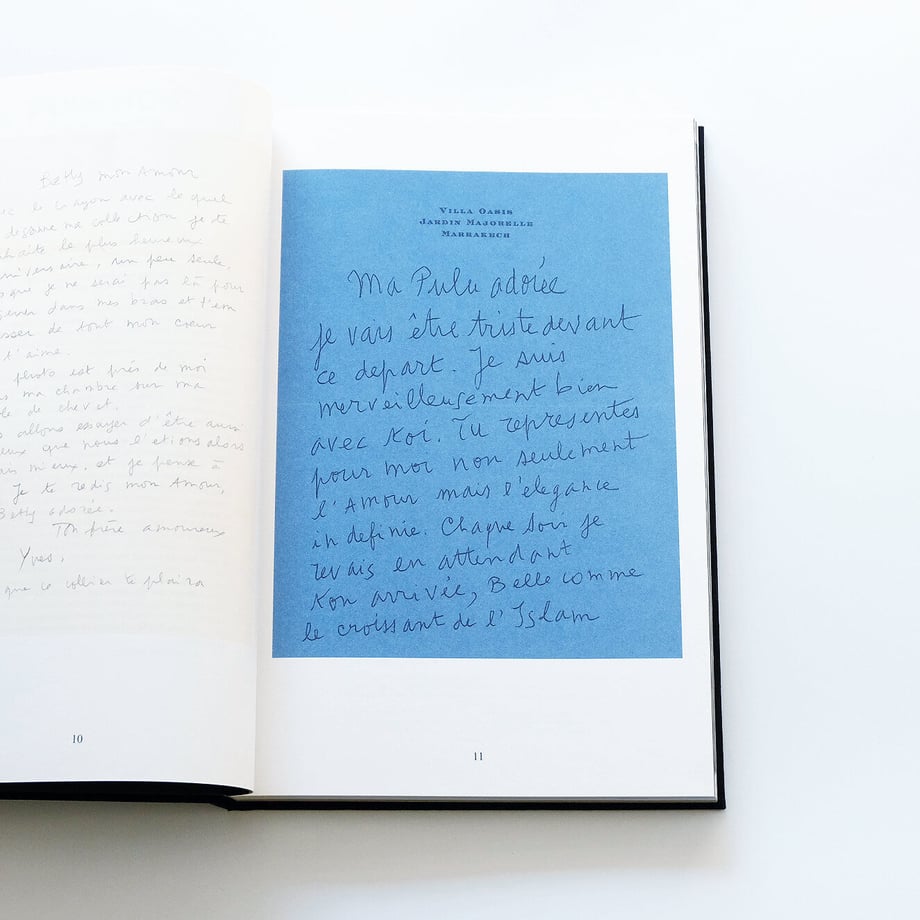 Betty mon Amour
le crayon avec lequel
dessine ma collection je te
le plus heureux
, un peu seule,
que je ne serai pas là pour
dans mes bras et t'em
sser de tout mon coeur
t'aime.
photo est près de moi
ma chambre sur ma
de chevet.
allons essayer d'être aussi
eux que nous l'etions alors
mieux. et je pense à
Je te redis mon Amour,
Betty adorée.
Ton frère amoureux
Yves.
que ce collier te plaira
10
VILLA OASIS
JARDIN MAJORELLE
MARRAKECH
Ma Pulu adorée
je vais être triste devant
ce depart. Je suis
merveilleusement bien
avec toi. Tu representes
pour moi non seulement
l'Amour mais l'elegance
indefinie. Chaque soir je
revais en attendant
ton arrivée, Belle comme
le croissant de l'Islam
11